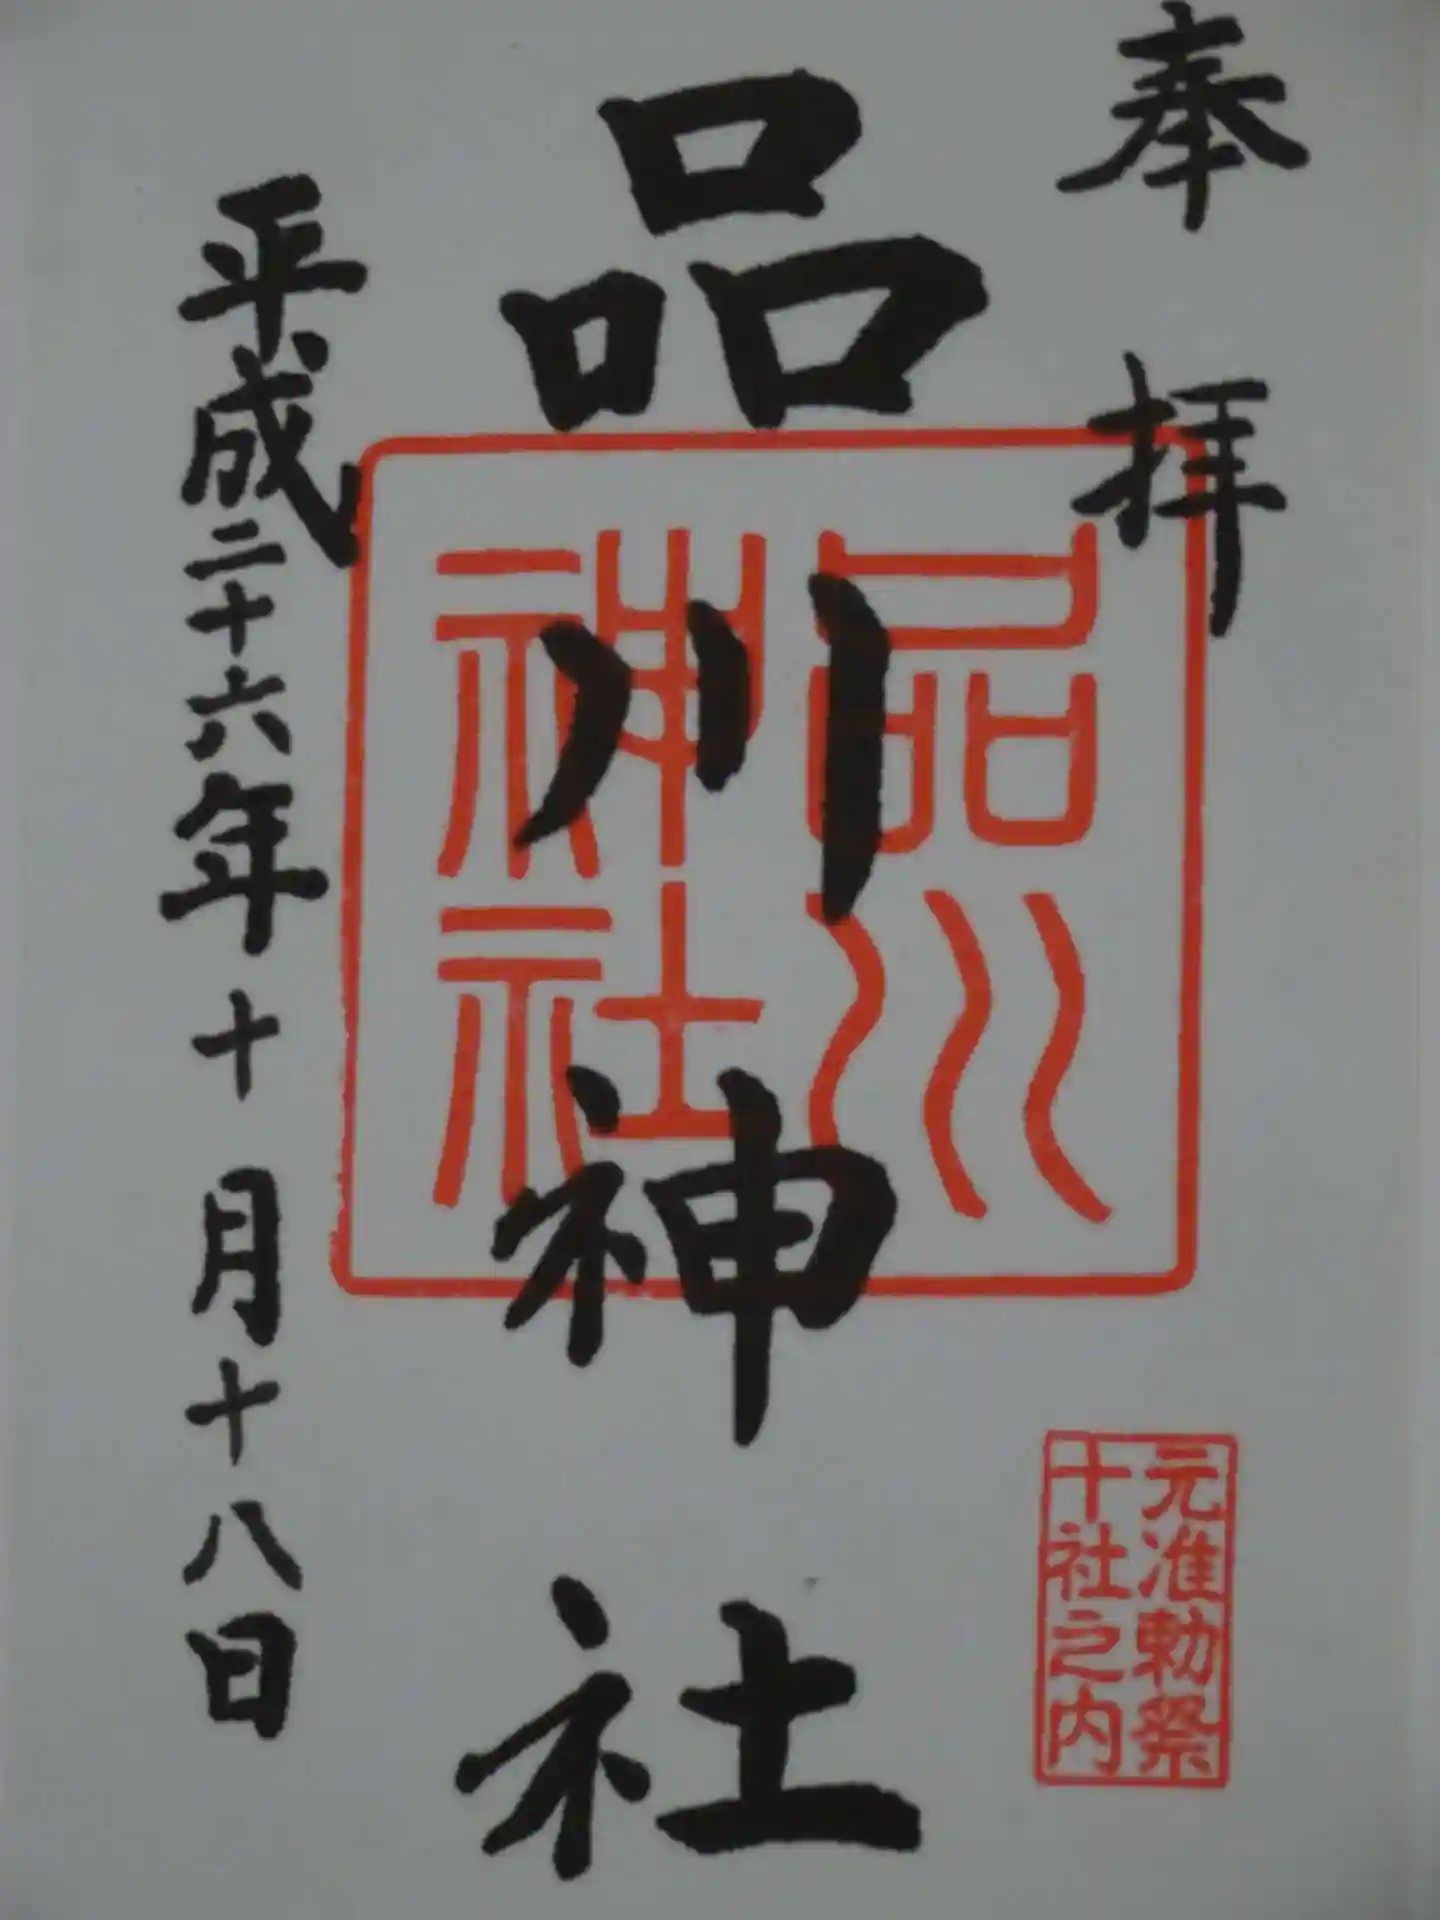 奉拝
元准勅祭
十社之内
品川神社
品川
神社
平成二十六年十月十八日